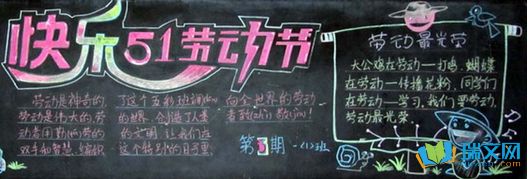 快乐51劳动节
劳动是神奇的,
劳动是伟大的,劳
动者用勤劳的
双手和智慧,编织
了这个五彩班谰(lán)
的世界,创造了人类
的文明,让我们在
这个特别的日子里,
向全世界的劳动
者致(zhì)敬(jìng)!
第3期 一(1)班
劳动最光荣
大公鸡在劳动—打鸣,蝴蝶
在劳动—传播花粉,同学们
在劳动—学习,我们要劳动,
劳动最光荣。
瑞文网